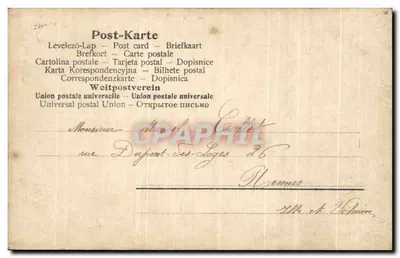 Post-Karte
Levelező-Lap — Post card — Briefkaart
Brefkort — Carte postale
Cartolina postale — Tarjeta postal — Dopisnice
Karta Korespondencyjna — Bilhete postal
Correspondenzkarte — Dopisnica
Weltpostverein
Union postale universelle — Union postale universale
Universal postal Union — Открытое письмо
CPAPHIL
Monsieur
rue Dupont-des-Loges 26
Rennes
Ille et Vilaine